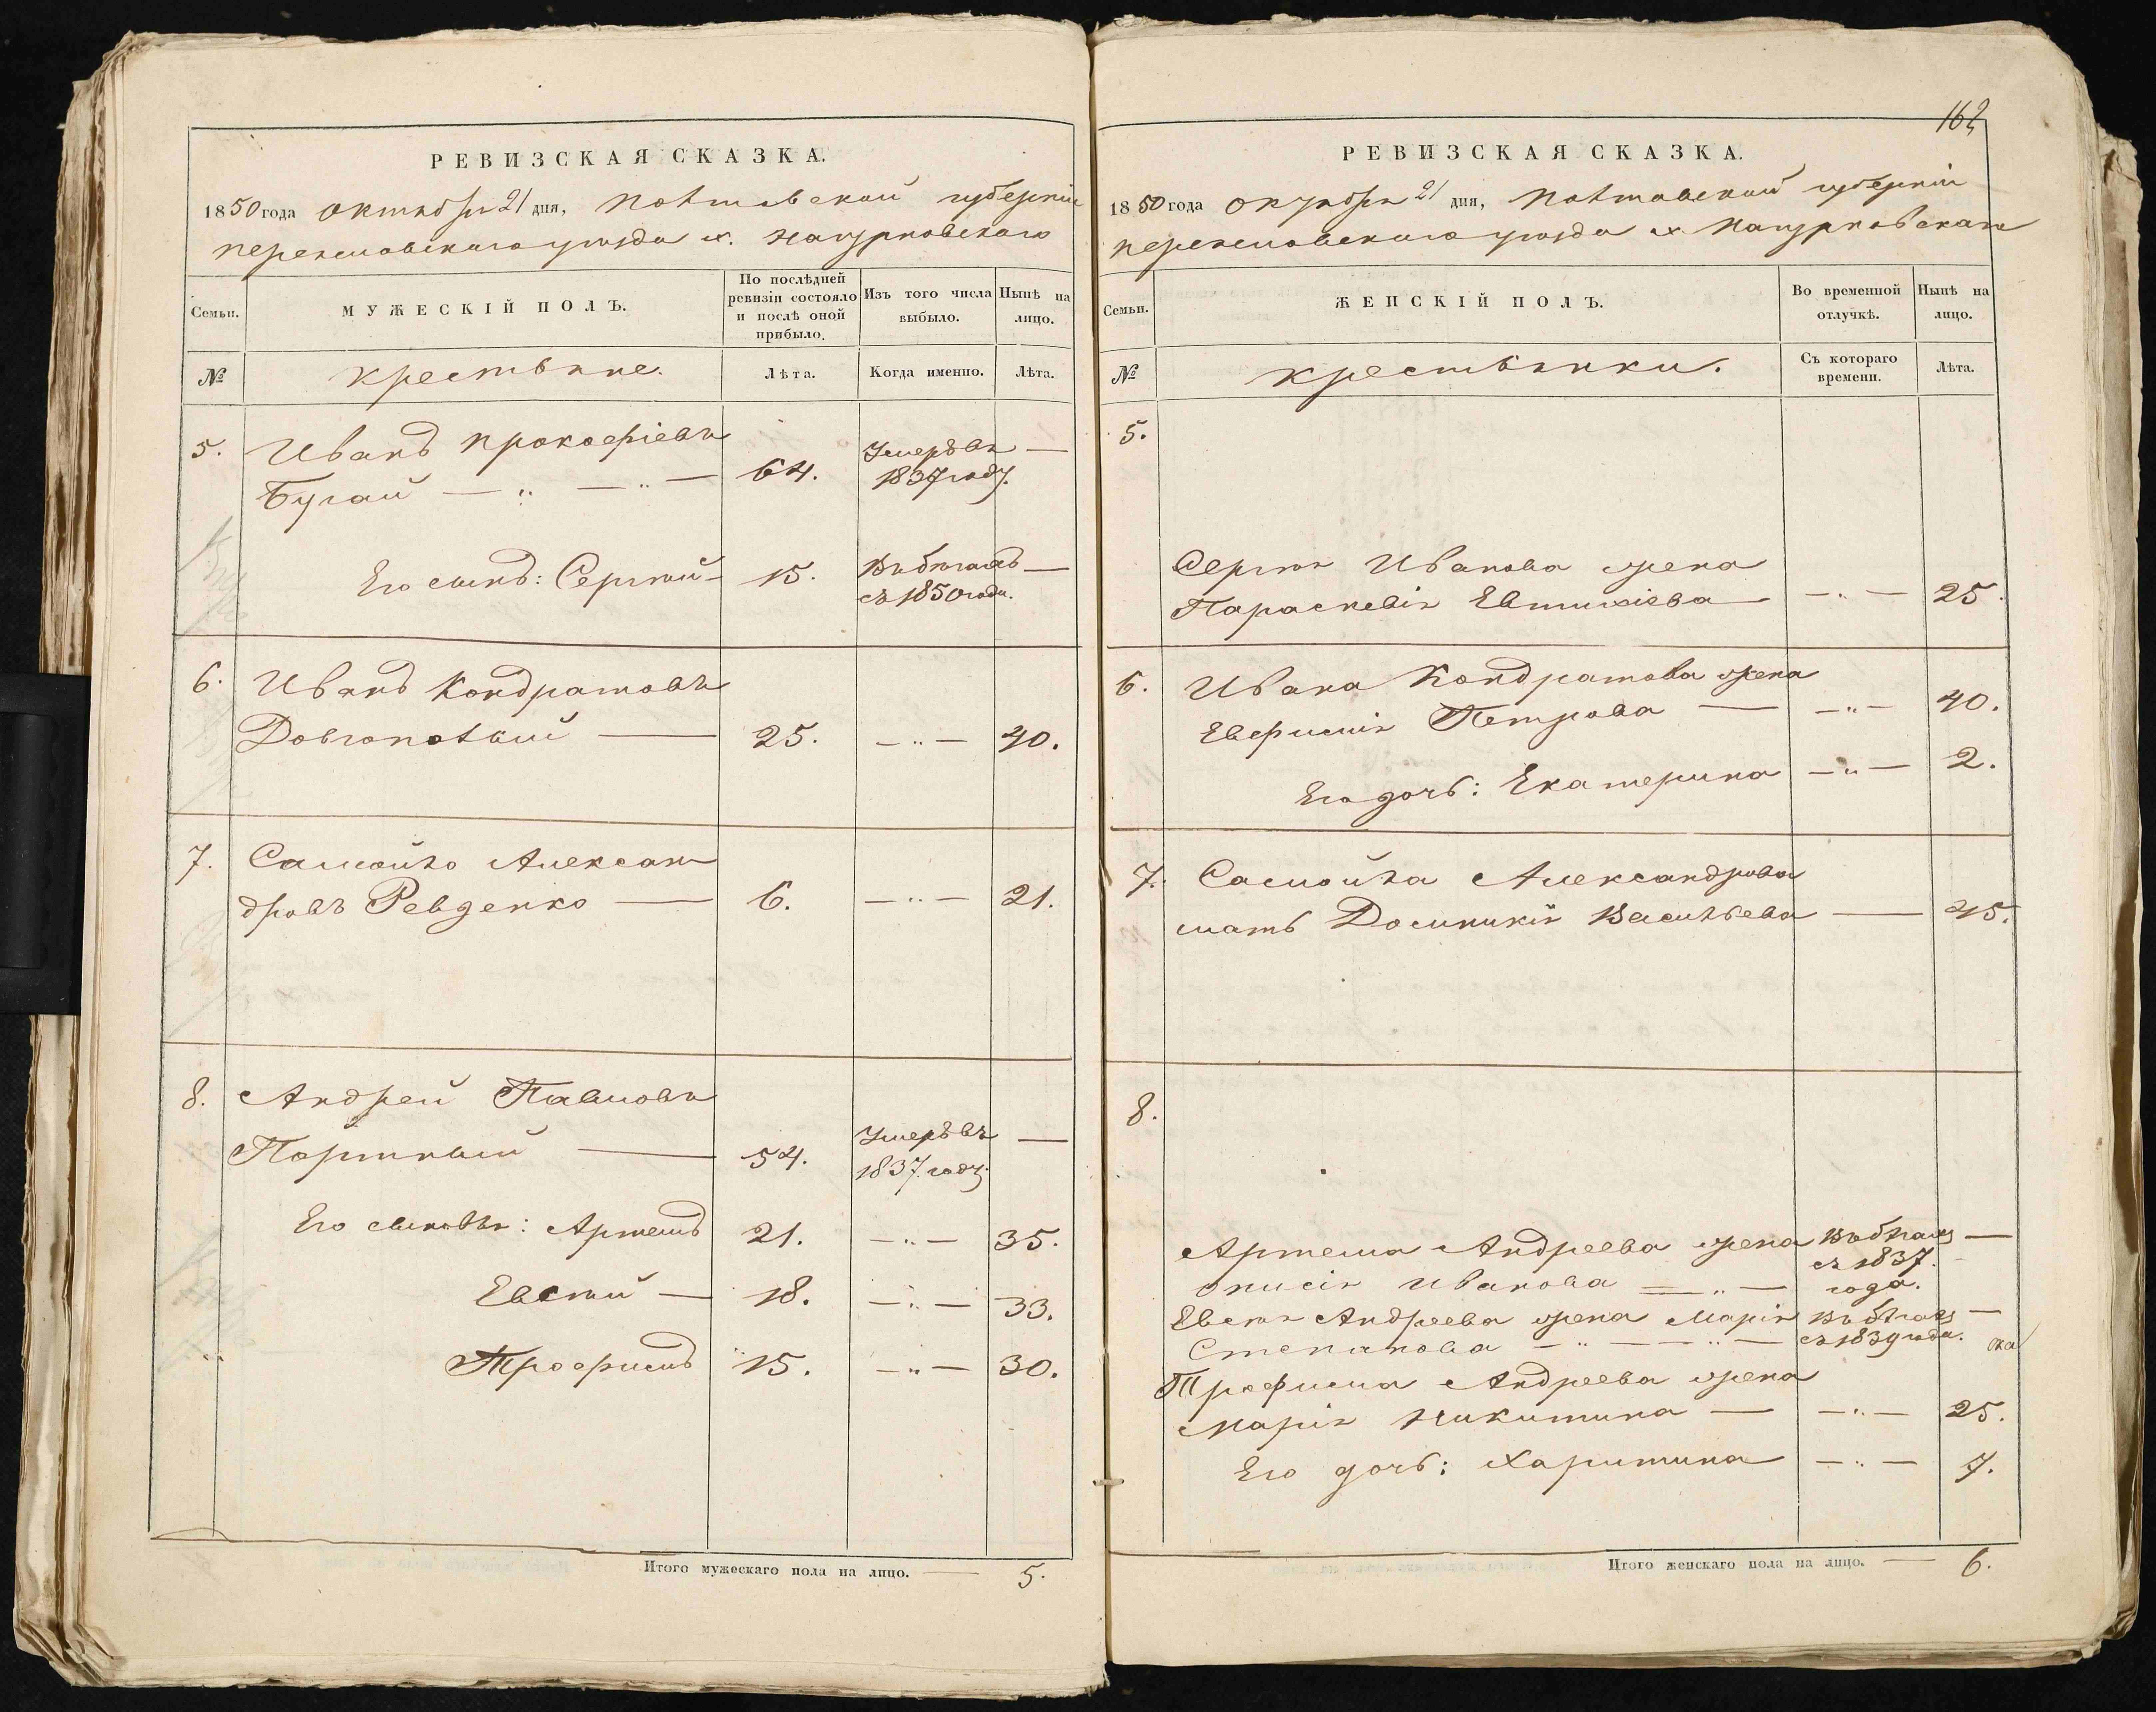 РЕВИЗСКАЯ СКАЗКА.
1850 года октября 21 дня, Полтавской губерніи
Переяславскаго уезда х.
Семьи.
МУЖЕСКІЙ ПОЛЪ.
По послѣдней ревизіи состояло и послѣ оной прибыло.
Изъ того числа выбыло.
Нынѣ на лицо.
№
крестьяне.
Лѣта.
Когда именно.
Лѣта.
5. Иванъ Прокофіевъ
Бугай — „ — „ — 64. Умеръ въ 1837 году. —
Его сынъ: Сергѣй — 15. Въ бѣгахъ съ 1850 года. —
6. Иванъ Кондратовъ
Довгополый — 25. — „ — 40.
7. Самойло Алексан
дровъ Ревденко — 6. — „ — 21.
8. Андрей Павловъ
Портный — 54. Умеръ въ 1837 году. —
Его сыновья: Артемъ 21. — „ — 35.
Евсѣй — 18. — „ — 33.
Трофимъ 15. — „ — 30.
Итого мужескаго пола на лицо. — 5.
162
РЕВИЗСКАЯ СКАЗКА.
1850 года октября 21 дня, Полтавской губерніи
Переяславскаго уезда х.
Семьи.
ЖЕНСКІЙ ПОЛЪ.
Во временной отлучкѣ.
Нынѣ на лицо.
№
крестьянки.
Съ котораго времени.
Лѣта.
5.
Сергѣя Иванова жена
Параскевія Евтихіева — — „ — 25.
6. Ивана Кондратова жена
Евфимія Петрова — — „ — 40.
Его дочь: Екатерина — „ — 2.
7. Самойла Александрова
мать Домникія Васильева — 45.
8.
Артема Андреева жена Въ бѣгахъ —
съ 1837.
Анисія Иванова — „ — года.
Евсѣя Андреева жена Марія Въ бѣгахъ —
Степанова — „ — „ — съ 1839 года.
Трофима Андреева жена
Марія Никитина — — „ — 25.
Его дочь: Харитина — „ — 7.
Итого женскаго пола на лицо. — 6.